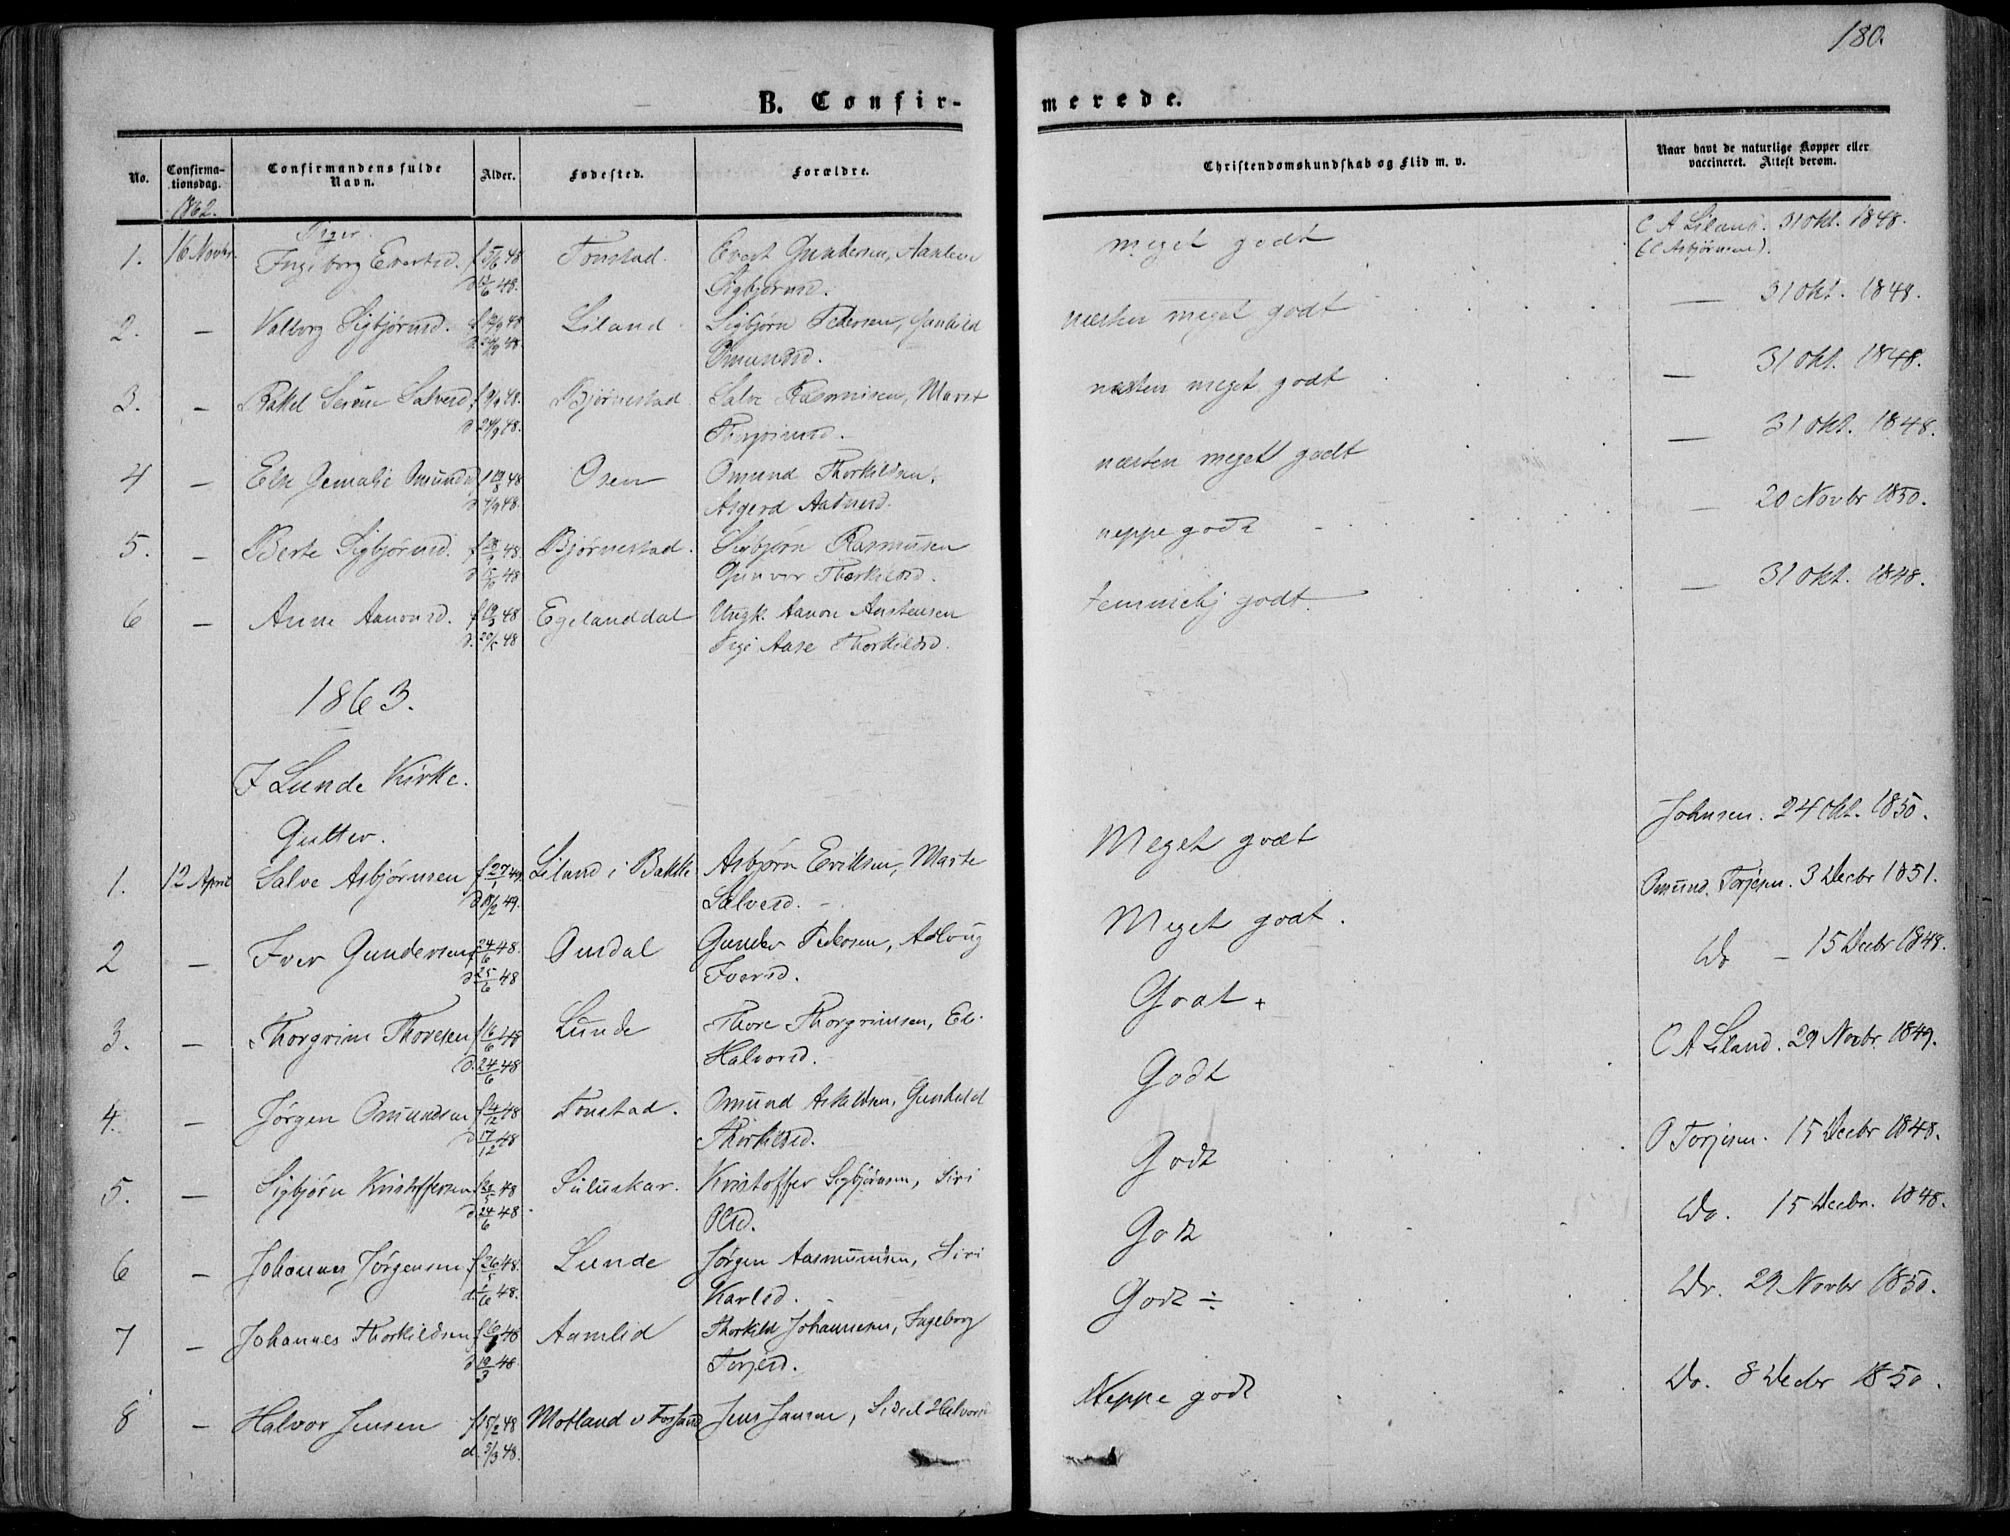 180.
B. Confir-
merede.
No.
Confirma-
tionsdag.
Confirmandens fulde
Navn.
Alder.
Fødested.
Forældre.
Christendomskundskab og Flid m. v.
Naar havt de naturlige Kopper eller
vaccineret. Attest derom.
1862.
Piger.
1. 16 Novbr. Ingeborg Evertsd. f 5/6 48 Tonstad. Evert Gundersen, meget godt C A Liland. 31 Okt. 1848.
d 12/6 48. Sigbjørnsd. (C Asbjørnsen).
2. — Valborg Sigbjørnsd. Liland. Sigbjørn Pedersen, Gunhild næsten meget godt — 31 Okt. 1848.
Omundsd.
3. — Rakel Serine Salvesd. f 9/9 48. Bjørnestad Salve Rasmusen, Maret næsten meget godt — 31 Okt. 1848.
d 24/9 48.
4 — Else Omundsd. Osen Omund Thorkildsen, næsten meget godt — 31 Okt. 1848.
Asgerd Aadnesd.
5. — Berte Sigbjørnsd. Bjørnestad. Sigbjørn Rasmusen neppe godt — 20 Novbr 1850.
Gunvor Thorkildsd.
6 — Anne Aanonsd. Egelanddal Ungk. Aanon Austensen temmelig godt. — 31 Okt. 1848.
Pige Aase Thorkildsd.
1863.
I Lunde Kirke.
Gutter.
1. 12 April Salve Asbjørnsen f 27/1 49. Liland i Bakke Asbjørn Eriksen, Marte Meget godt Johnsen. 24 Okt. 1850.
d 18/2 49. Salvesd. —
2 — Iver Gundersen f 24/6 48. Ousdal Gunder Pedersen, Adlaug Meget godt. Omund Torjesen. 3 Decbr 1851.
d 25/6 48 Iversd.
3. — Thorgrim Thoresen f 16/6 48 Lunde Thore Thorgrimsen, El. Godt + Do — 15 Decbr 1848.
d. 24/6 48 Halvorsd.
4. — Jørgen Omundsen f 4/12 48 Tonstad. Omund Askildsen, Gunhild Godt C A Liland. 29 Novbr. 1849.
d 17/12 48 Thorkildsd.
5. — Sigbjørn Kristoffersen Siluskar. Kristoffer Sigbjørnsen, Siri Godt O Torjesen. 15 Decbr 1848.
d 24/6 48. Olsd.
6 — Johannes Jørgensen f 26/5 48. Lunde Jørgen Aasmundsen, Siri Godt Do. 15 Decbr. 1848.
d. 1/6 48. Karlsd. —
7 — Johannes Thorkildsen Aamlid Thorkild Johannesen, Ingeborg Godt ÷ Do. 29 Novbr 1850.
d 19/3 48. Torjesd.
8 — Halvor Jensen f 15/2 48 Motland v Jens Jansen, Sidsel Halvorsd Neppe godt Do. 8 Decbr 1850.
d. 5/3 48.